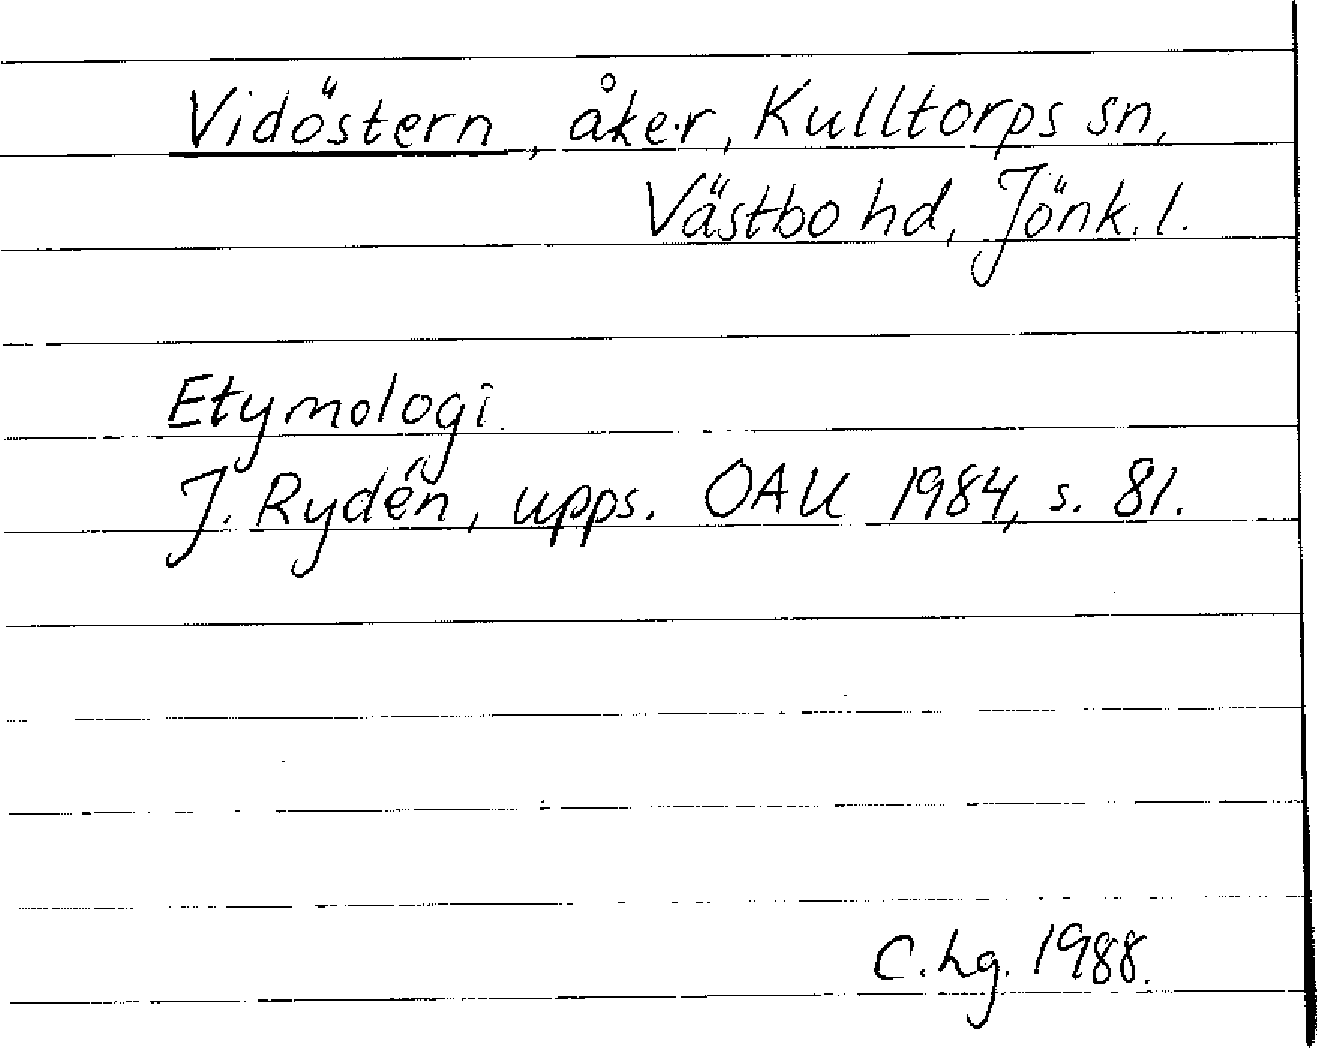 Vidöstern, åker, Kulltorps sn,
Västbo hd, Jönk. l.
Etymologi.
J. Rydén, upps. OAU 1984, s. 81.
C. Lg. 1988.